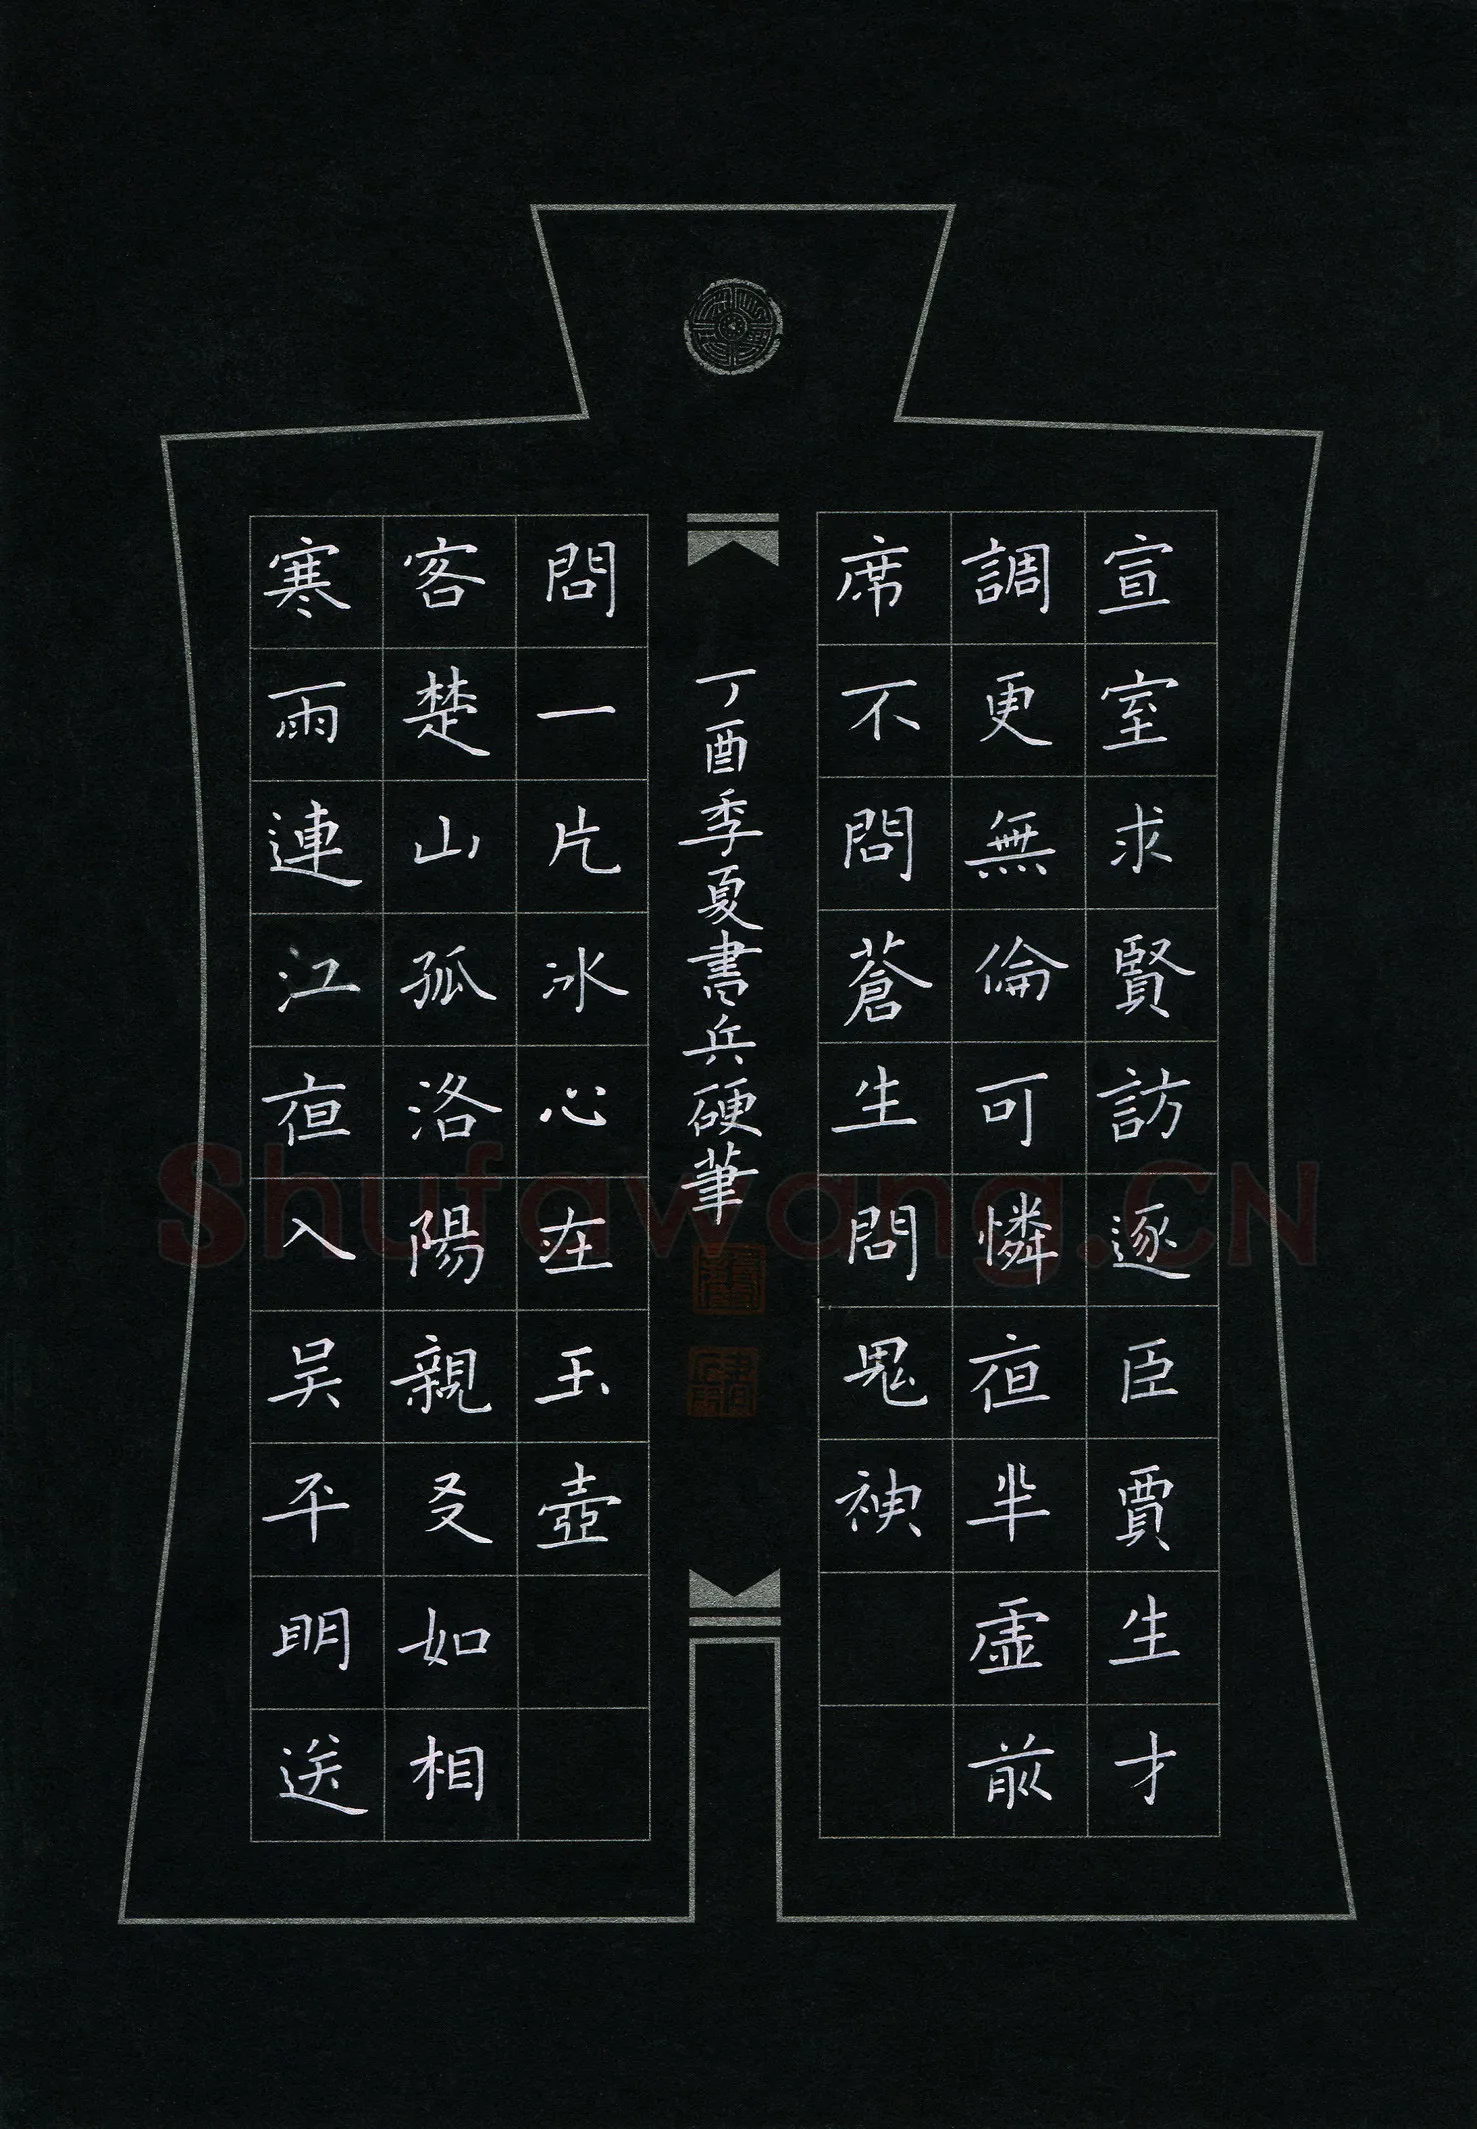 宣室求賢訪逐臣賈生才
調更無倫可憐夜半虛前
席不問蒼生問鬼神
寒雨連江夜入吳平明送
客楚山孤洛陽親友如相
問一片冰心在玉壺
丁酉季夏書兵硬筆
Shufawang.CN